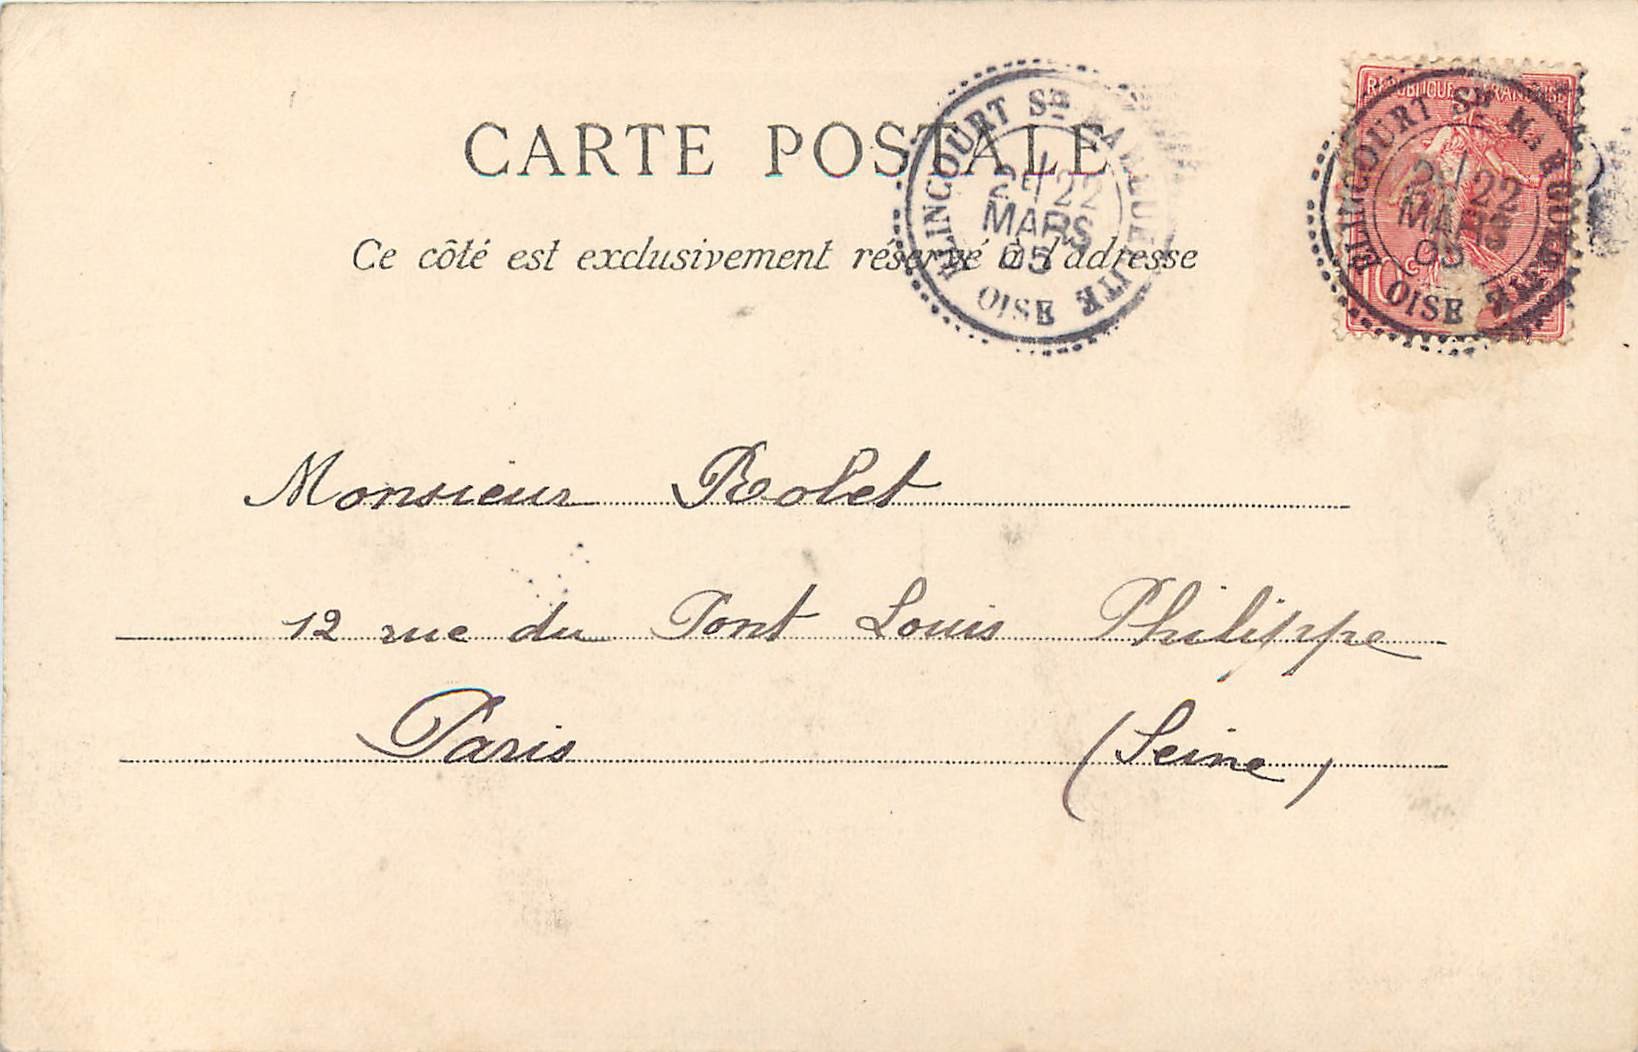 CARTE POSTALE
Ce côté est exclusivement réservé à l'adresse
ELINCOURT STE MARGUERITE
22
MARS
05
OISE
REPUBLIQUE FRANÇAISE
10c
ELINCOURT STE MARGUERITE
22
MARS
05
OISE
Monsieur Rolet
12 rue du Pont Louis Philippe
Paris (Seine)